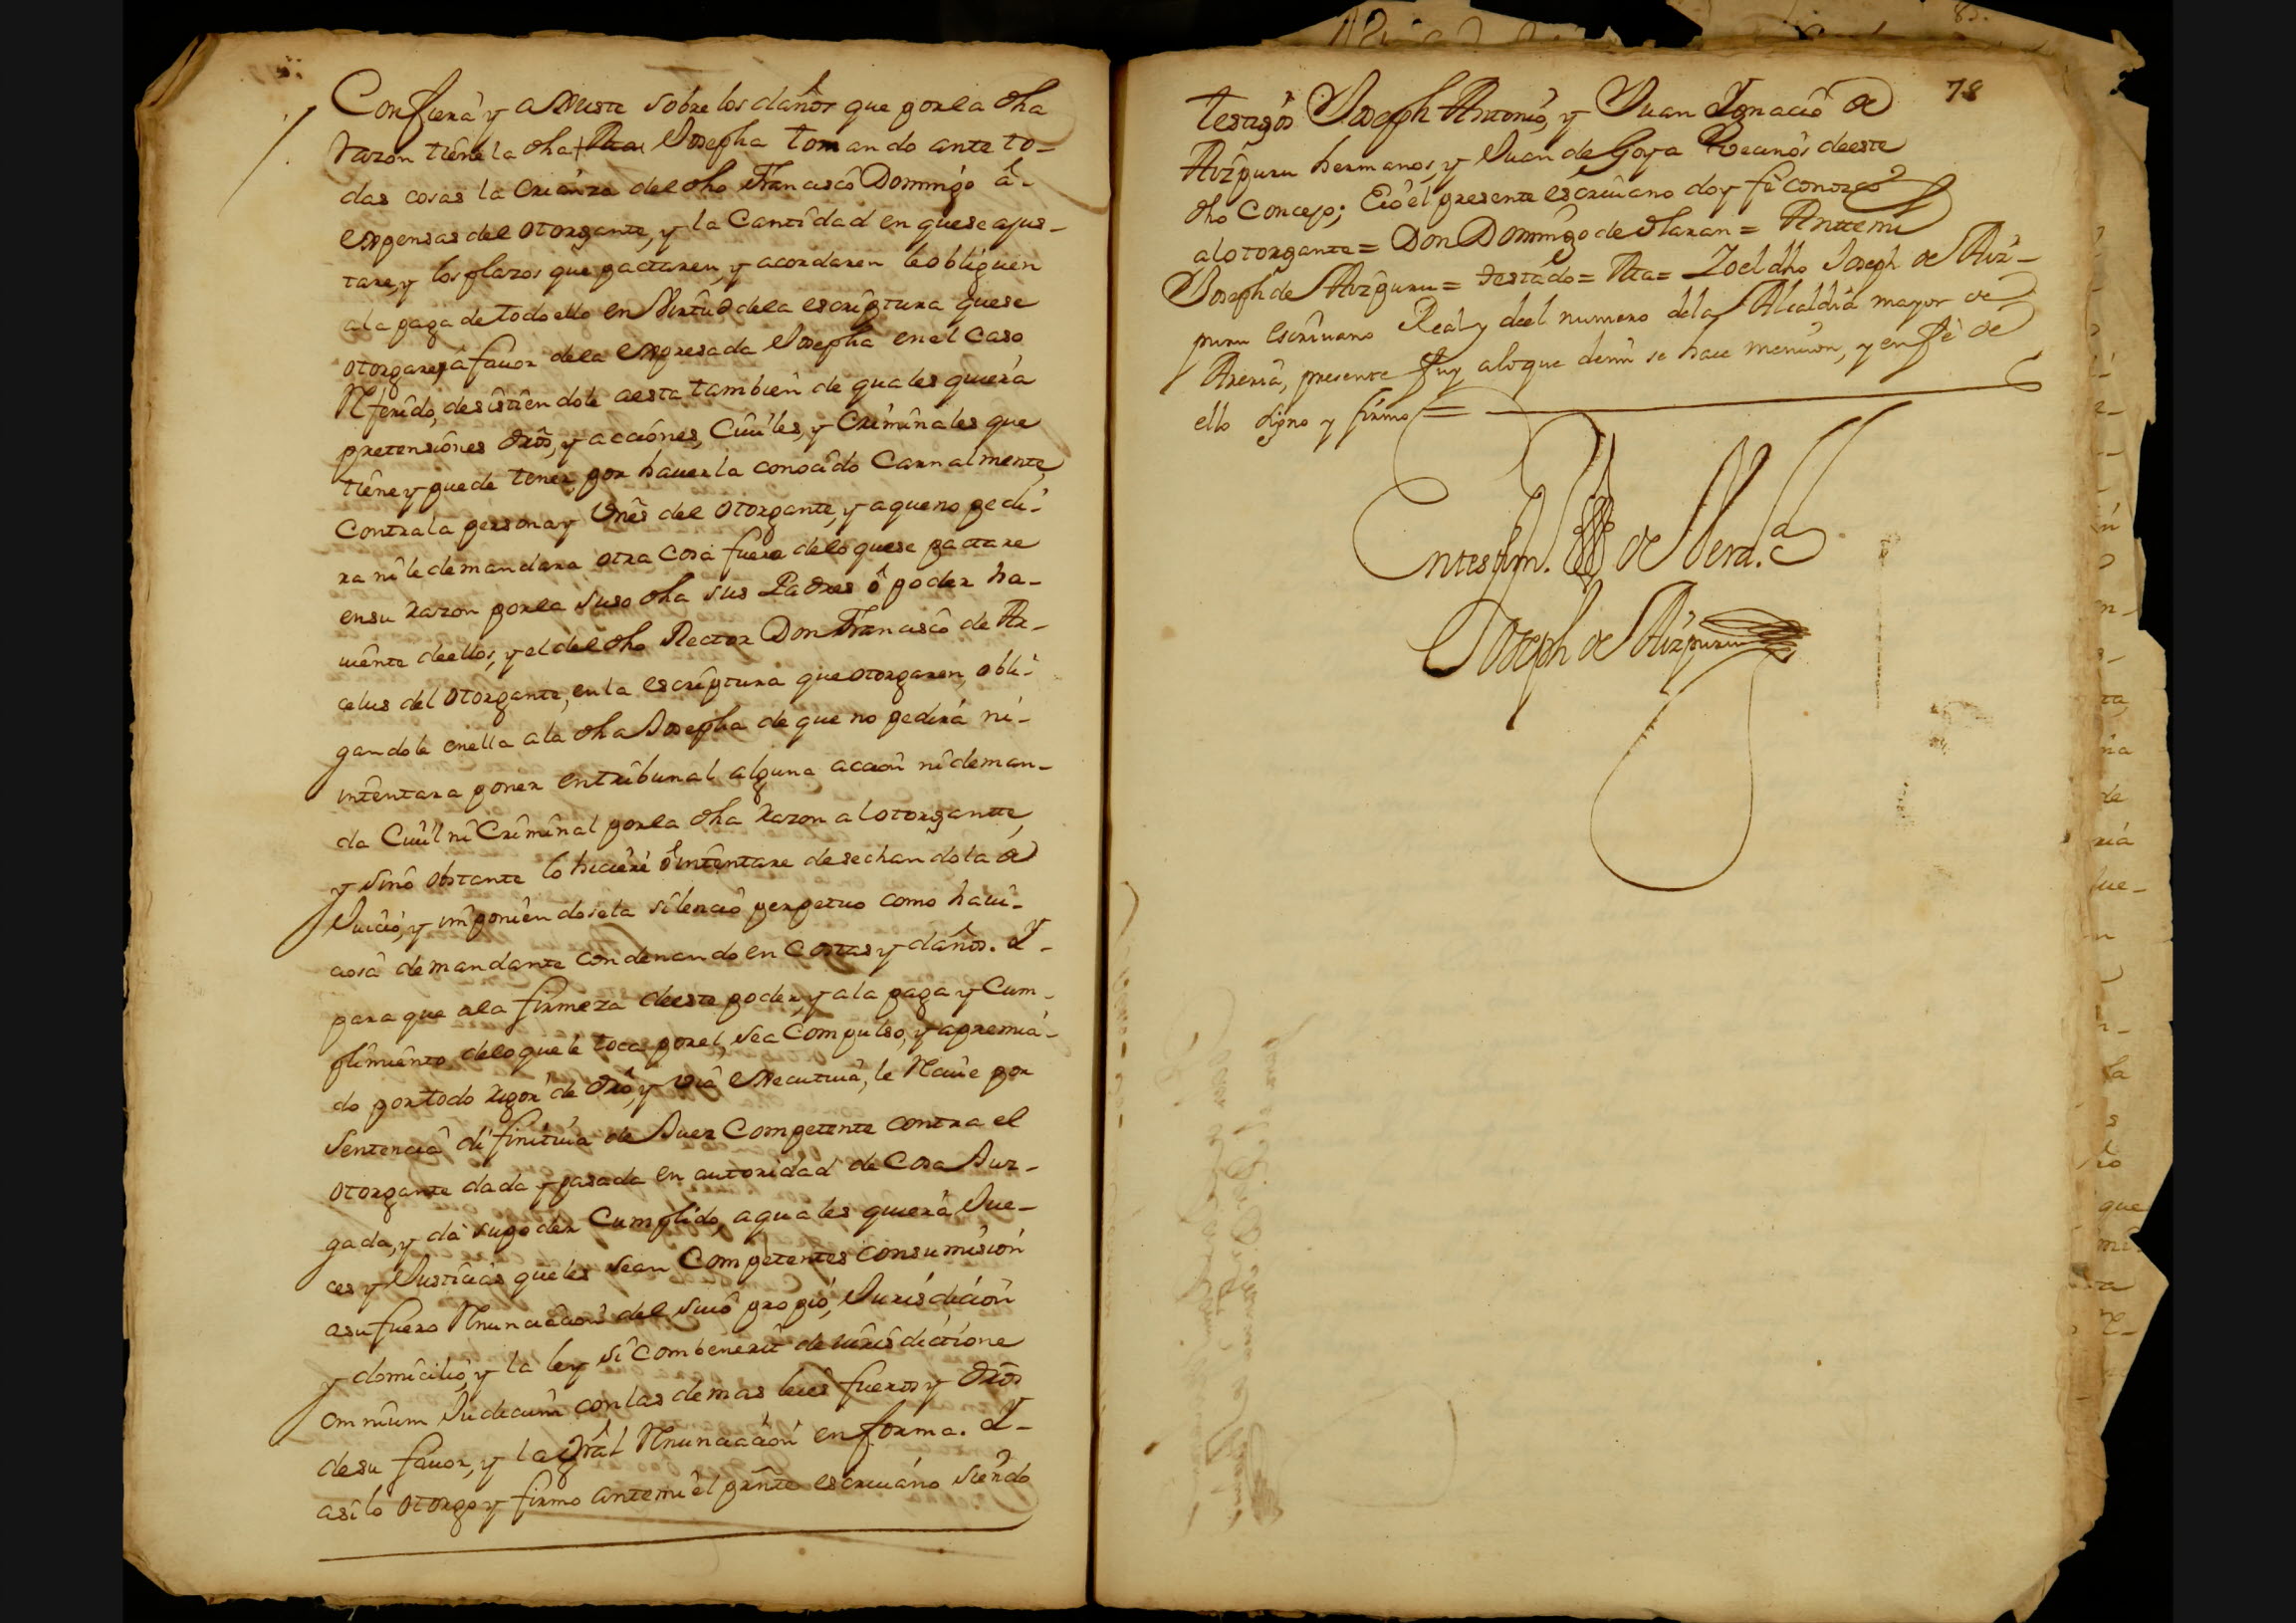 Confiera y a Juste sobre los daños que por la dha
razon tiene la dha Josepha tomando ante to-
das cosas la crianza del dho Francisco Domingo â
expensas del otorgante, y la Cantidad en que se ajus-
tare, y los plazos que pactaren, y acordaren le obliguen
a la paga de todo ello en Virtud de la escriptura que se
otorgare, â favor de la expresada Josepha en el Caso
Referido, desistiendole aesta tambien de quales quiera
pretensiones dros, y acciones, Civiles, y Criminales que
tiene y puede tener por haverla conocido Carnalmente,
Contra la persona y Vnês del otorgante, y aque no pedi-
ra ni le demandara otra Cosa fuera delo que se pactare
en su razon por la suso dha sus Padres ô poder ha-
uiente deellos, y el del dho Rector Don Francisco de Ar-
celus del otorgante, en la escriptura que otorgaren, obli-
gandole en ella a la dha Josepha de que no pedirá ni-
intentara poner en tribunal alguna accion ni deman-
da Civil ni Criminal por la dha razon al otorgantte,
y sino obstante lo hiciere ô intentare desechandola de
Juicio, y imponiendosela silencio perpetuo como havi-
aosa demandante condenando en Costas y daños. Y-
para que ala firmeza deeste poder, y ala paga y Cum-
plimiento delo que le toca por el, sea Compulso, y apremia-
do por todo rigor de dro, y via executiva, le Recive por
Sentencia difinitiva de Juez Competente contra el
otorgante dada y pasada en autoridad de Cosa Juz-
gada, y da su poder Cumplido, a quales quiera Jue-
ces y Justicias que les sean Competentes con sumision
a su fuero Renunciacion del suio propio, Jurisdicion
y domicilio, y la ley si combenerit de iurisdictione
omnium Judicum con las demas leies fueros y dros
de su favor, y la Gral Renunciacion en forma. Y-
asi lo otorgo y firmo ante mi el prnte escrivano siendo
78
testigos Joseph Antonio, y Juan Ygnacio de
Aizpuru hermanos, y Juan de Goya Vecinos deeste
dho Concejo; E io el presente escrivano doy fe conozco
al otorgante = Don Domingo de Olaran = Antte mi
Joseph de Aizpuru = testado = Ata = Yo el dho Joseph de Aiz-
puru Escrivano Real y del numero dela Alcaldia mayor de
Areria, presente fuy alo que demi se hace mencion, y en fe de
ello signo y firmo =
En testim.º de Verd.d
Joseph de Aizpuru